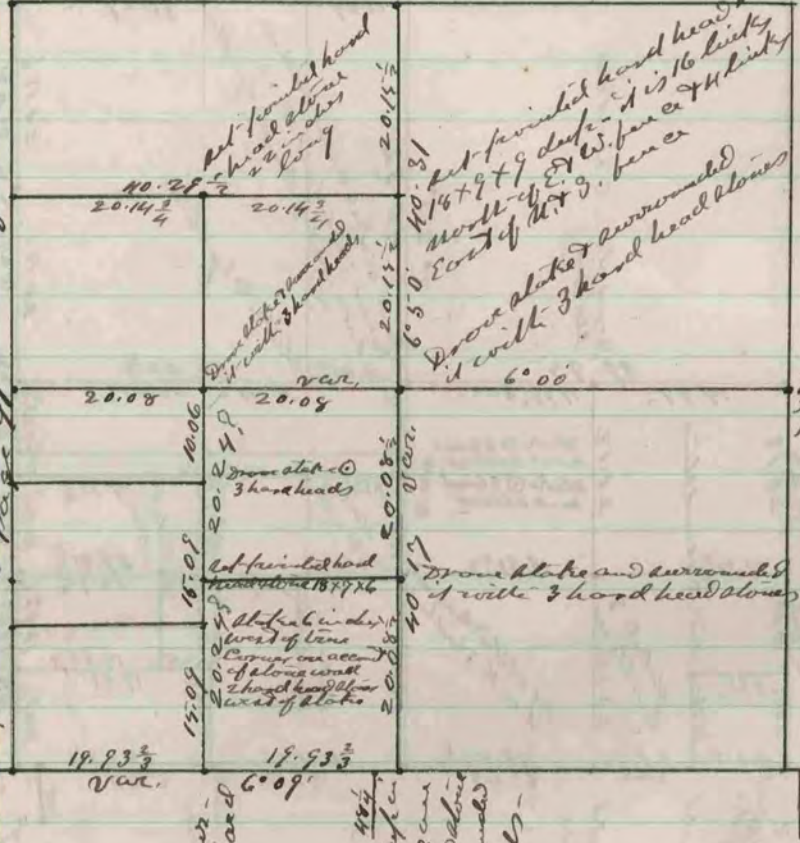 set pointed hard
head stone
22 inches
long
20.15 1/2
40.29 1/2
20.14 3/4
20.14 3/4
set pointed hard head
18 x 9 x 9 deep - it is 16 links
north of E. & W. fence & 4 links
East of N. & S. fence
40.31
Drove stake & surrounded
it with 3 hard heads
20.15 1/2
6° 50'
Drove stake & surrounded
it with 3 hard head stones
var.
6° 00'
20.08
20.08
10.06
20.24
Drove stake
3 hard heads
20.08 1/2
var.
15.09
set pointed hard
head stone 18 x 9 x 6
40 17
Drove stake and surrounded
it with 3 hard head stones
15.09
20.24
stake 6 inches
west of true
Corner on account
of stone wall
2 hard head stones
west of stake
20.08 1/2
19.93 2/3
19.93 2/3
var.
6° 09'
Page
484
stone